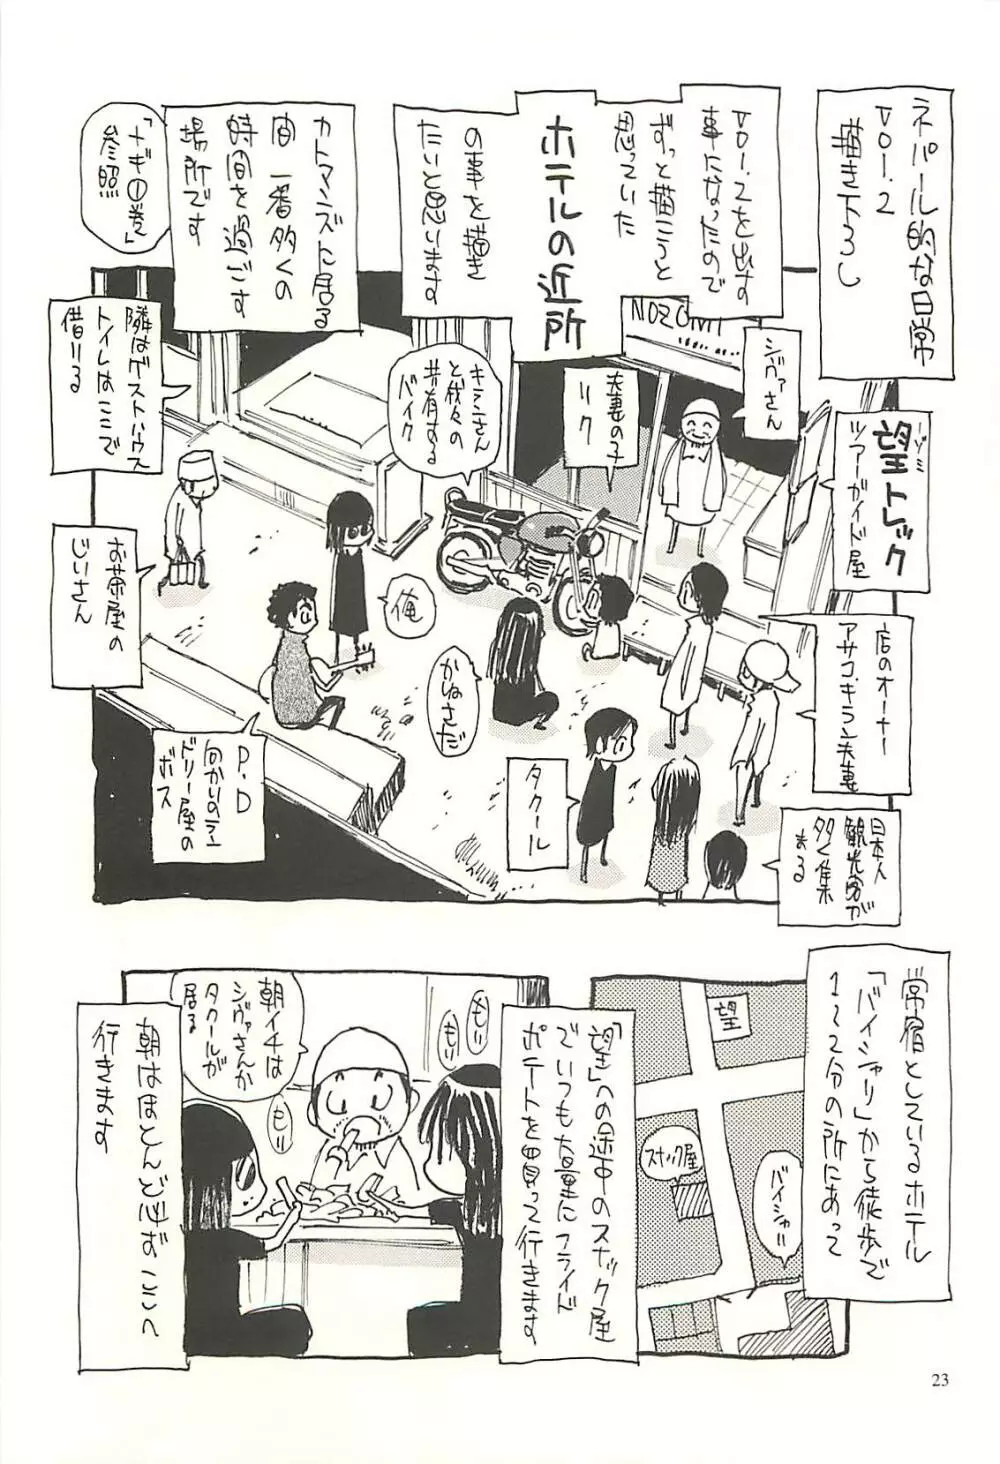 ネパール的な日常
VOl.2
描き下ろし
VOl.2を出す
事になったので
ずっと描こうと
思っていた
ホテルの近所
の事を描き
たいと思います
カトマンズに居る
間一番多くの
時間を過ごす
場所です
「ナギ①巻」
参照
NOZOMI
シヴァさん
ノゾミ
望トレック
ツアーガイド屋
夫妻の子
リク
キランさん
と我々の
共有する
バイク
隣はゲストハウス
トイレはここで
借りる
お茶屋の
じいさん
俺
かねさだ
店のオーナー
アサコ、キラン夫妻
P.D
向かいのラン
ドリー屋の
ボス
タクール
日本人
観光客が
多く集
まる
常宿としているホテル
「バイシャリ」から徒歩で
1〜2分の所にあって
望
スナック屋
バイシャリ
「望」への途中のスナック屋
でいつも大量にフライド
ポテトを買って行きます
もり
もり
もり
朝イチは
シヴァさんか
タクールが
居る
朝はほとんど必ずここへ
行きます
23